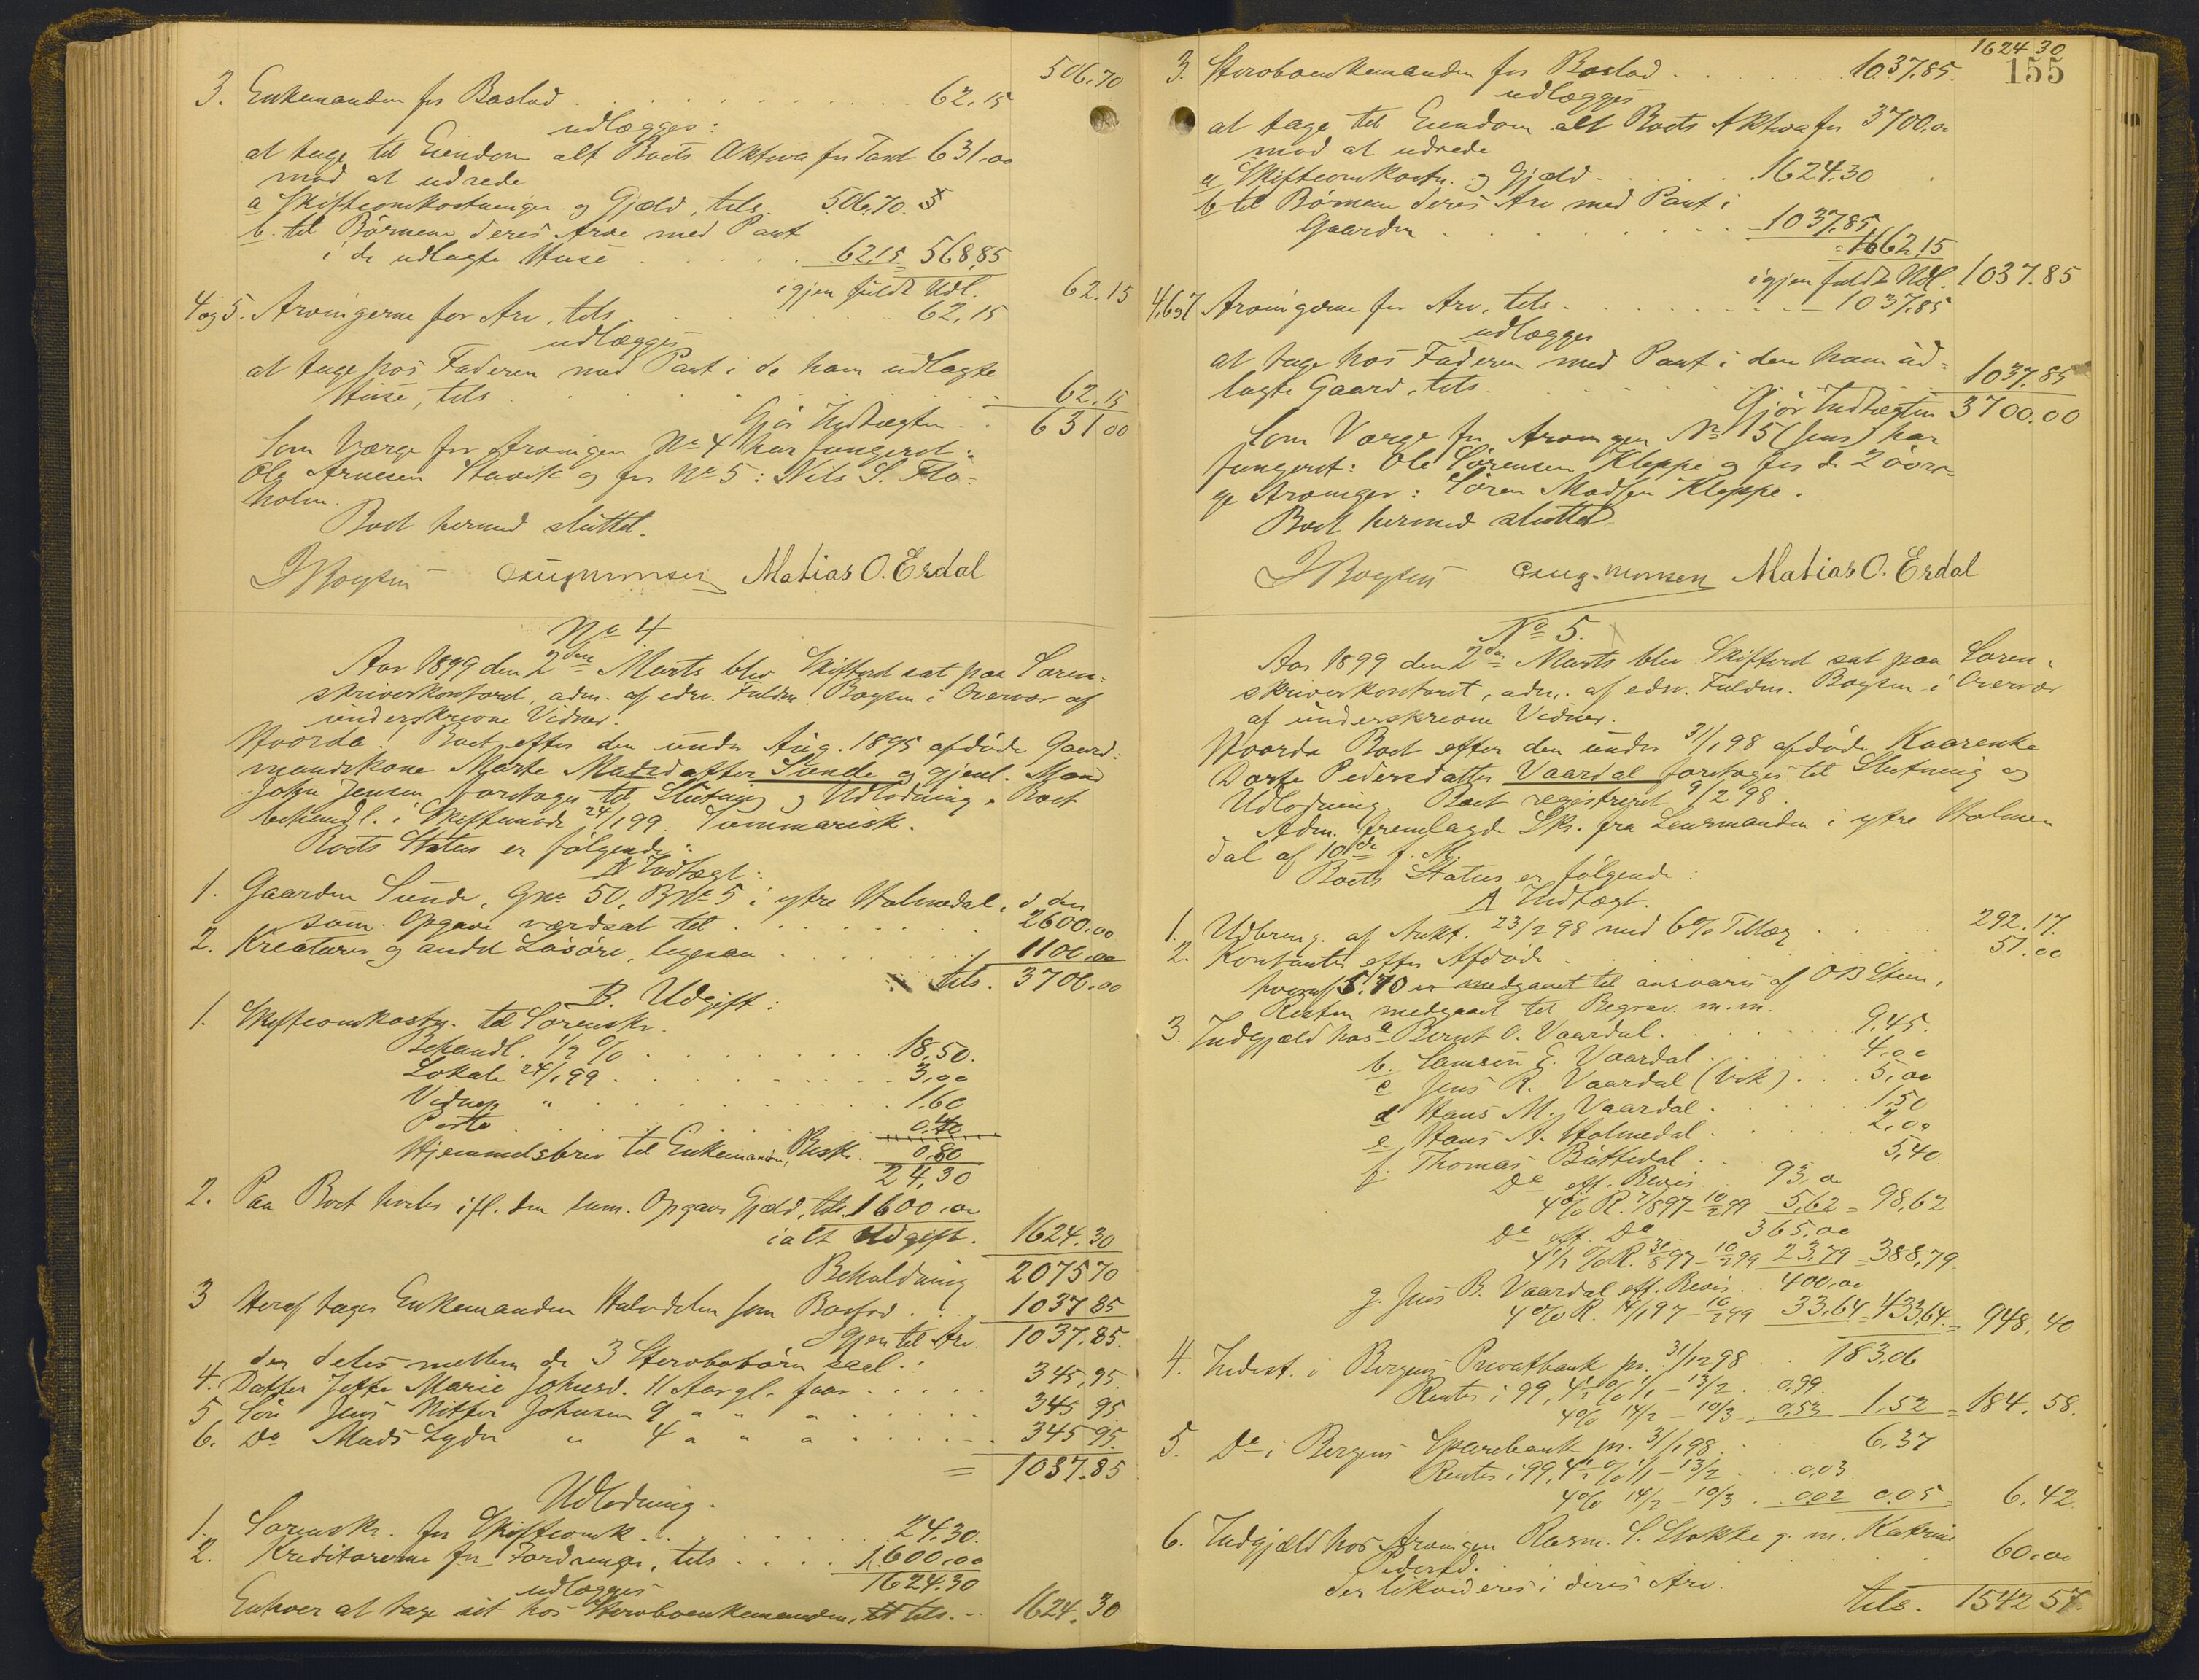 506.70
3. Enkemanden for Boslod . . . . . . . . . . . . 62.15
udlægges:
at tage til Eiendom alt Boets Aktiva for Taxt 631.00
mod at udrede
a Skifteomkostninger og Gjæld, tils. 506.70
b. til Børnene deres Arve med Pant
i de udlagte Huse . . . . . 62.15 = 568.85
igjen fuldt Udl. 62.15
4 og 5. Arvingerne for Arv, tils. . . . . . . 62.15
udlægges
at tage hos Faderen med Pant i de ham udlagte
Huse, tils . . . . . . . . . . . 62.15
Gjør Indtægten . . 631 00
Som Værge for Arvingen No 4 har fungeret:
Ole Arnesen Stavik og for No 5: Nils S. Flo-
holm.
Boet hermed sluttet.
Matias O. Erdal
No 4
Aar 1899 den 2den Marts blev Skifteret sat paa Soren-
skriverkontoret, adm. af edsv. Fuldm. Bøgsen i Overvær af
underskrevne Vidner.
Hvorda! Boet efter den under Aug. 1895 afdøde Gaard-
mandskone Marte Madsdatter Sunde og gjenl. Mand
John Jensen foretages til Slutning og Udlodning. Boet
behandl. i Skiftemøde 24/1 99. Summarisk.
Boets Status er følgende:
A Indtægt:
1. Gaarden Sunde, Gno 50, BNo 5 i ytre Holmedal, e. den
sum. Opgave værdsat til . . . . . . . 2600.00
2. Kreaturer og andet Løsøre, ligesaa . . . . . . 1100.00
tils. 3700.00
B. Udgift:
1. Skifteomkostn. til Sorenskr.
Behandl. 1/2 % . . . . . . . . 18.50.
Lokale 24/1 99 . . . . . . . . 3.00
Vidner " . . . . . . . . . 1.60
Porto . . . . . . . . . 0.40
Hjemmelsbrev til Enkemanden, Besk. 0.80
24.30
2. Paa Boet hviler ifl. den sum. Opgave Gjæld, tils. 1600.00
ialt Udgift. 1624.30
Beholdning 2075 70
3 Heraf tager Enkemanden Halvdelen som Boslod . . 1037 85
Igjen til Arv. 1037.85.
der deles mellem de 3 Sterbobørn saal.:
4. Datter Jette Marie Johnsd. 11 Aar gl. faar . . . . . 345.95.
5. Søn Jens Nitter Johnsen 9 " " " . . . . . 345 95
6. Do Mads Lyder " 4 " " " . . . . . 345 95.
= 1037.85
Udlodning.
1. Sorenskr. for Skifteomk. . . . . . . . 24.30.
2. Kreditorerne for Fordringer, tils . . . . 1600.00
1624.30
udlægges
Enhver at tage sit hos Sterboenkemanden, tils. . . 1624.30
1624 30
155
3. Sterboenkemanden for Boslod . . . . . . . 1037.85.
udlægges
at tage til Eiendom alt Boets Aktiva for 3700.00
mod at udrede
a Skifteomkostn. og Gjæld . . . . . . 1624.30
b til Børnene deres Arv med Pant i
Gaarden . . . . . . . . . 1037.85
= 2662.15
igjen fuldt Udl. 1037.85
4, 6 og 7 Arvingerne for Arv, tils. . . . . . . . . . 1037.85
udlægges
at tage hos Faderen med Pant i den ham ud-
lagte Gaard, tils. . . . . . . . . . 1037.85
Gjør Indtægten 3700.00
Som Værge for Arvingen No 5 (Jens) har
fungeret: Ole Sørensen Kleppe og for de 2 øvri-
ge Arvinger: Søren Madsen Kleppe.
Boet hermed sluttet
Matias O. Erdal
No 5.
Aar 1899 den 2den Marts blev Skifteret sat paa Soren-
skriverkontoret, adm. af edsv. Fuldm. Bøgsen i Overvær
af underskrevne Vidner.
Hvorda Boet efter den under 31/1 98 afdøde Kaarenke
Dorte Pedersdatter Vaardal foretages til Slutning og
Udlodning. Boet registreret 9/2 98.
Adm. fremlagde Skr. fra Lensmanden i ytre Holme-
dal af 10de f. M.
Boets Status er følgende:
A Indtægt.
1. Udbring. af Aukt. 23/2 98 med 6% Tillæg . . . . . 292.17.
2. Kontanter efter Afdøde . . . . . . . . . . 51.00
hvoraf 5.70 er medgaaet til ansvars af O B Steen,
Resten medgaaet til Begrav. m.m.
3. Indgjæld hos a Bernt O. Vaardal . . . . . . . 9.45.
b. Samson E. Vaardal . . . . . . 4.00
c Jens R. Vaardal (Vik) . . . 5.00
d Hans M. Vaardal . . . . . . 1.50
e Hans A. Holmedal . . . . . . 2.00
f. Thomas Buttedal . . . . . . 5.40.
Do eft. Bevis . . 93.00
4% R. 7/8 97 - 10/2 99 5.62 = 98.62
Do eft. Do 365.00
4 1/2 % R. 30/8 97 - 10/2 99 23.79 = 388.79.
g. Jens B. Vaardal eft. Bevis . . 400.00
4% R. 14/1 97 - 10/2 99 33.64 = 433.64 = 948.40
4. Indest. i Bergens Privatbank pr. 31/12 98 . . 183.06
Renter i 99, 4 1/2 % 1/1 - 13/2 . . 0.99.
4% 14/2 - 10/3 0.53 1.52 = 184.58.
5. Do i Bergens Sparebank pr. 31/1 98 . . 6.37
Renter i 99, 4 1/2 % 1/1 - 13/2 . . 0.03
4% 14/2 - 10/3 . 0.02 0.05 = 6.42
6. Indgjæld hos Arvingen Rasm. S. Stokke g. m. Katrine
Pedersd. . . . . . . . . 60.00
der likvideres i deres Arv.
tils. 1542 57.